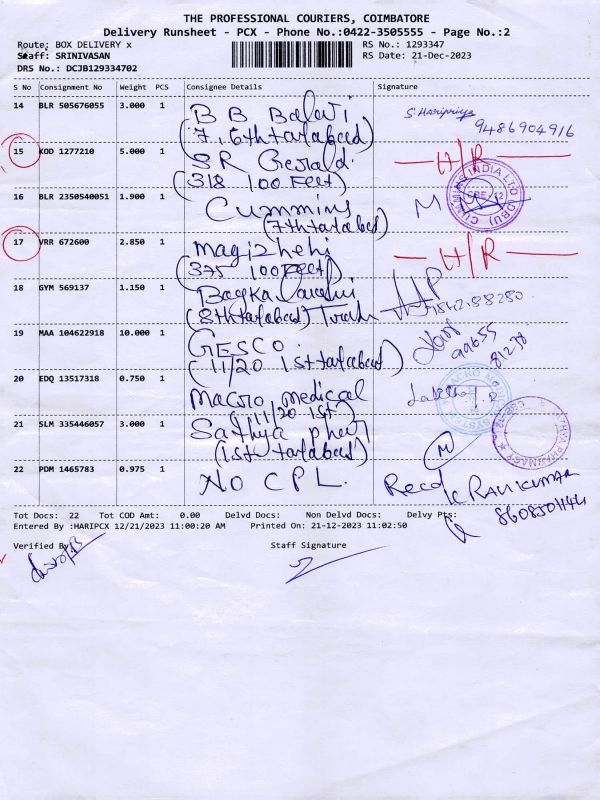 THE PROFESSIONAL COURIERS, COIMBATORE
Delivery Runsheet - PCX - Phone No.:0422-3505555 - Page No.:2
Route: BOX DELIVERY x
Staff: SRINIVASAN
DRS No.: DCJB129334702
RS No.: 1293347
RS Date: 21-Dec-2023
S No Consignment No Weight PCS Consignee Details Signature
14 BLR 505676055 3.000 1 B B Balaji S. Haripriya
(7, 6th tatabad) 9486904916
15 KOD 1277210 5.000 1 SR Gerald. H/R
(318 100 Feet)
16 BLR 2350540051 1.900 1 Cummins
(7th tatabad)
CUMMINS INDIA LTD (DBU)
17 VRR 672600 2.850 1 Magizhchi H/R
(375 100 Feet)
18 GYM 569137 1.150 1
(8th tatabad)
19 MAA 104622918 10.000 1 GESCO. 99655
(11/20 1st tatabad) 81238
20 EDQ 13517318 0.750 1 Macro medical
(11/20 1st)
21 SLM 335446057 3.000 1 Sathya
(1st tatabad) M
22 PDM 1465783 0.975 1 NO CPL. Recd K RAVIKUMAR
8608501144
Tot Docs: 22 Tot COD Amt: 0.00 Delvd Docs: Non Delvd Docs: Delvy Pts:
Entered By :HARIPCX 12/21/2023 11:00:20 AM Printed On: 21-12-2023 11:02:50
Verified By Staff Signature